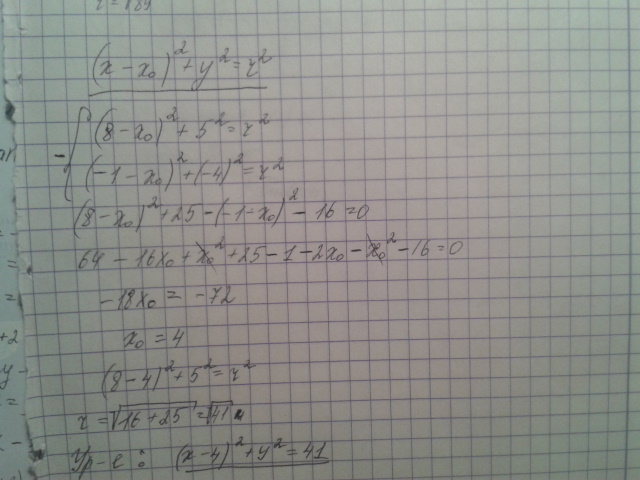 (x - x₀)² + y² = r²
(8 - x₀)² + 5² = r²
- { (-1 - x₀)² + (-4)² = r²
(8 - x₀)² + 25 - (-1 - x₀)² - 16 = 0
64 - 16x₀ + x₀² + 25 - 1 - 2x₀ - x₀² - 16 = 0
-18x₀ = -72
x₀ = 4
(8 - 4)² + 5² = r²
r = √16 + 25 = √41
Ур-е: (x - 4)² + y² = 41